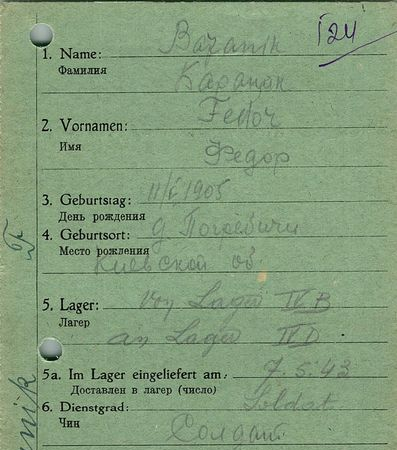 124
1. Name: Bazanik
Фамилия
2. Vornamen: Fedor
Имя Федор
3. Geburtstag: 1905
День рождения
4. Geburtsort: д
Место рожления
Киевской об
5. Lager: Von Lager IV B
Лагер
an Lager IV D
5a. Im Lager eingeliefert am: 7.5.43
Доставлен в лагер (число)
6. Dienstgrad: Soldat
Чин Солдат